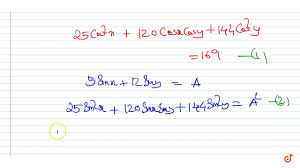 25Cos²x + 120CosxCosy + 144Cos²y
= 169 —(1)
5Sinx + 12Siny = A
25Sin²x + 120SinxSiny + 144Sin²y = A² —(2)